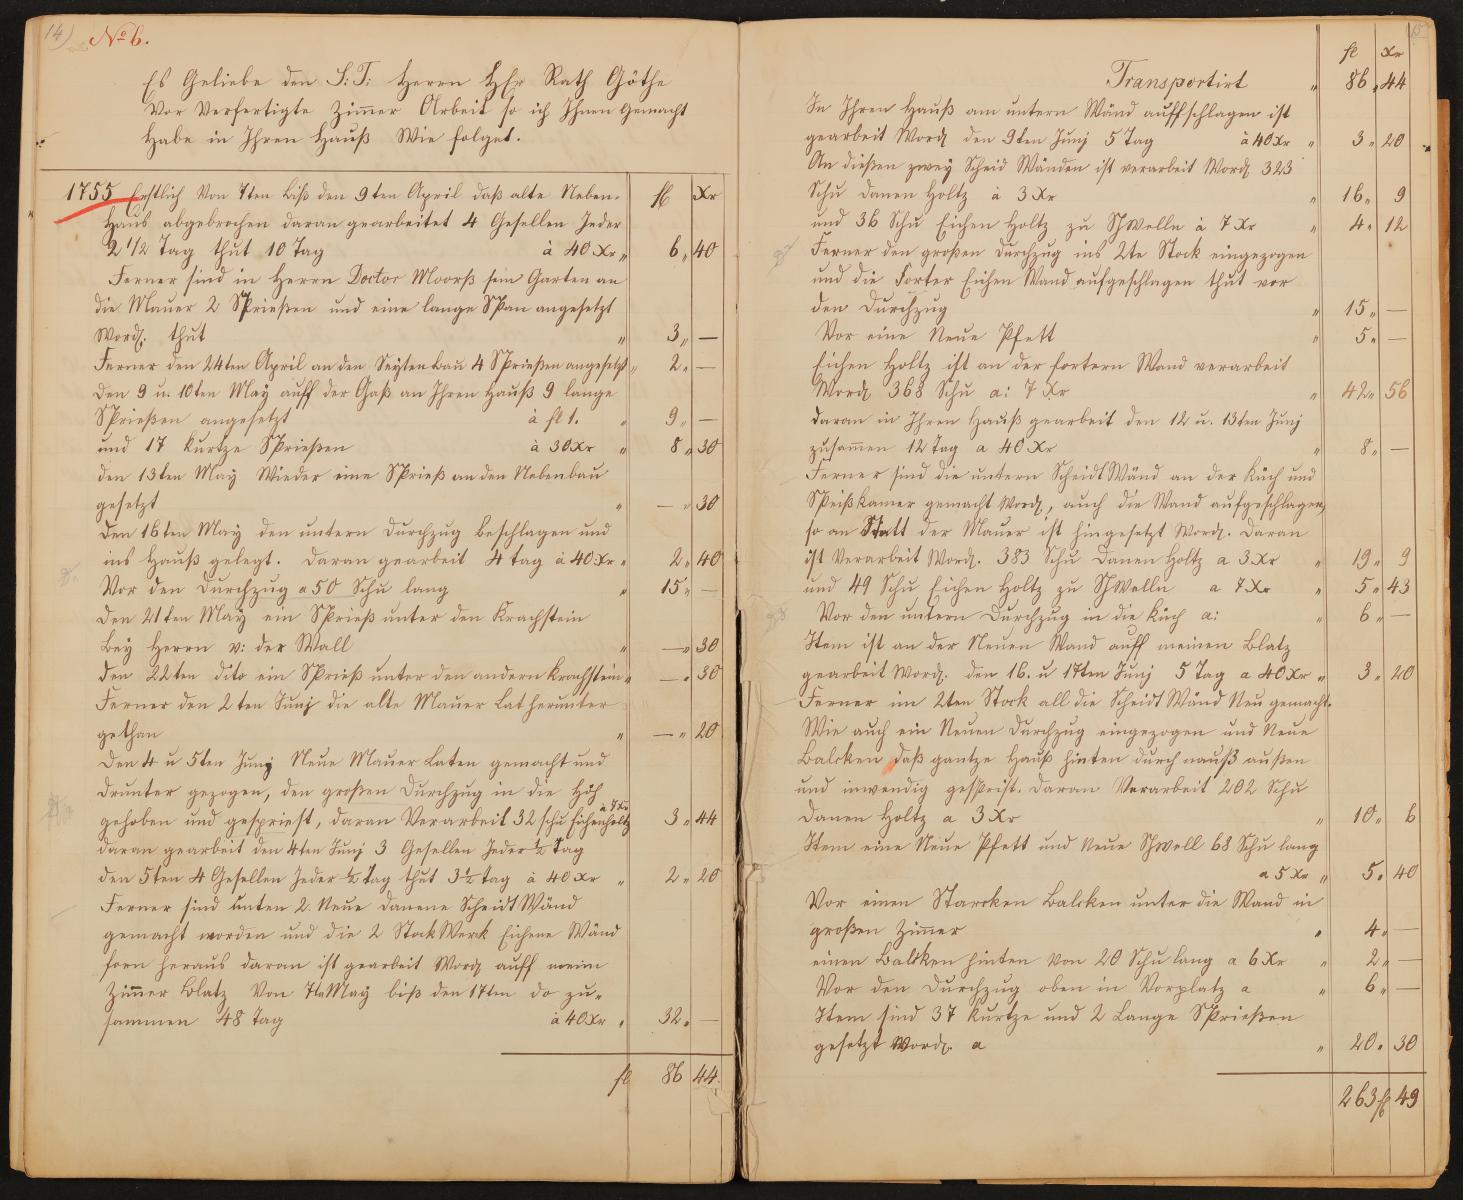 14)
No 6.
Es Geliebe den S: T: Herrn Hhr Rath Göthe
Vor Verfertigte Zimer Arbeit so ich Ihnen Gemacht
Habe in Ihren Hauß Wie folget.
1755 Erstlich Von 7ten biß den 9ten April daß alte Neben- fl Xr
Haus abgebrochen daran gearbeitet 4 Gesellen Jeder
2 1/2 Tag thut 10 Tag à 40 Xr „ 6 „ 40
Ferner sind in Herrn Doctor Moorß sein Garten an
die Mauer 2 Sprießen und eine lange Span angesetzt
Word. thut „ 3 „ —
Ferner den 24ten April an den Seytenbau 4 Sprießen angesetzt „ 2 „ —
Den 9 u. 10ten May auff der Gaß an Ihren Hauß 9 lange
Sprießen angesetzt à fl 1. „ 9 „ —
und 17 kurtze Sprießen à 30 Xr „ 8 „ 30
den 13ten May Wieder eine Sprieß an den Nebenbau
gesetzt „ — „ 30
Den 16ten May den untern Durchzug beschlagen und
ins Hauß gelegt. daran gearbeit 4 tag à 40 Xr „ 2 „ 40
Vor den Durchzug a 50 Schu lang „ 15 „ —
Den 21ten May ein Sprieß unter den Krachstein
bey Herrn v: der Wall „ — „ 30
den 22ten dito ein Sprieß unter den andern Krachstein „ — „ 30
Ferner den 2ten Junj die alte Mauer Lat herunter
gethan „ — „ 20
Den 4 u 5ten Junj Neue Mauer Laten gemacht und
drunter gezogen, den großen Durchzug in die Höh
gehoben und gespriest, daran Verarbeit 32 schu Eichenholtz à 7 Xr 3 „ 44
daran gearbeit den 4ten Junj 3 Gesellen Jeder 1/2 Tag
den 5ten 4 Gesellen Jeder 1/2 Tag thut 3 1/2 tag à 40 Xr „ 2 „ 20
Ferner sind unten 2 Neue danene Scheidt Wänd
gemacht worden und die 2 Stock Werck Eichene Wänd
forn heraus daran ist gearbeit Word auff meim
Zimer Blatz Von 7ten May biß den 17ten do zu-
sammen 48 Tag à 40 Xr „ 32 „ —
fl 86 44.
15
fl Xr
Transportirt „ 86 „ 44
In Ihren Hauß am untern Wänd auffschlagen ist
gearbeit Word den 9ten Junj 5 Tag à 40 Xr „ 3 „ 20
An dießen zwey Scheid Wänden ist verarbeit Word 323
Schu danen Holtz à 3 Xr „ 16 „ 9
und 36 Schu Eichen Holtz zu Schwelln à 7 Xr „ 4 „ 12
Ferner den großen Durchzug ins 2te Stock eingezogen
und die Forter Eichen Wand aufgeschlagen thut vor
den Durchzug „ 15 „ —
Vor eine Neue Pfett „ 5 „ —
Eichen Holtz ist an der fortern Wand verarbeit
Word 368 Schu a: 7 Xr „ 42 „ 56
daran in Ihren Hauß gearbeit den 12 u. 13ten Junj
zusammen 12 Tag a 40 Xr „ 8 „ —
Ferner sind die untern Scheidt Wänd an der Küch und
Speißkamer gemacht Word, auch die Wand aufgeschlagen,
so an Statt der Mauer ist hingesetzt Word. Daran
ist Verarbeit Word. 383 Schu Danen Holtz a 3 Xr „ 19 „ 9
und 49 Schu Eichen Holtz zu Schwelln a 7 Xr „ 5 „ 43
Vor den untern Durchzug in die Küch a: „ 6 „ —
Item ist an der Neuen Wand auff meinen Blatz
gearbeit Word. den 16. u 17ten Junj 5 Tag a 40 Xr „ 3 „ 20
Ferner im 2ten Stock all die Scheidt Wänd Neu gemacht.
Wie auch ein Neuen Durchzug eingezogen und Neue
Balcken daß gantze Hauß hinten durch nauß außen
und inwendig gesprist. Daran Verarbeit 202 Schu
Danen Holtz a 3 Xr „ 10 „ 6
Item eine Neue Pfett und Neue Schwell 68 Schu lang
a 5 Xr „ 5 „ 40
Vor einen Starcken Balcken unter die Wand in
großen Zimer „ 4 „ —
einen Balcken hinten von 20 Schu lang a 6 Xr „ 2 „ —
Vor den Durchzug oben in Vorplatz a „ 6 „ —
Item sind 37 kurtze und 2 Lange Sprießen
gesetzt Word. a „ 20 „ 30
263 fl 49